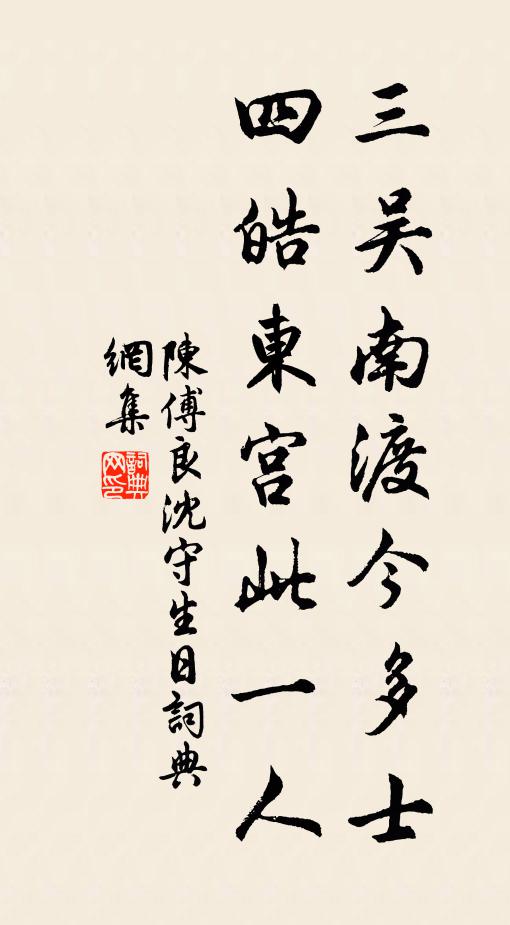 三吴南渡今多士
四皓東宫此一人
陳傅良沈守生日詞典
網集
詞典網印